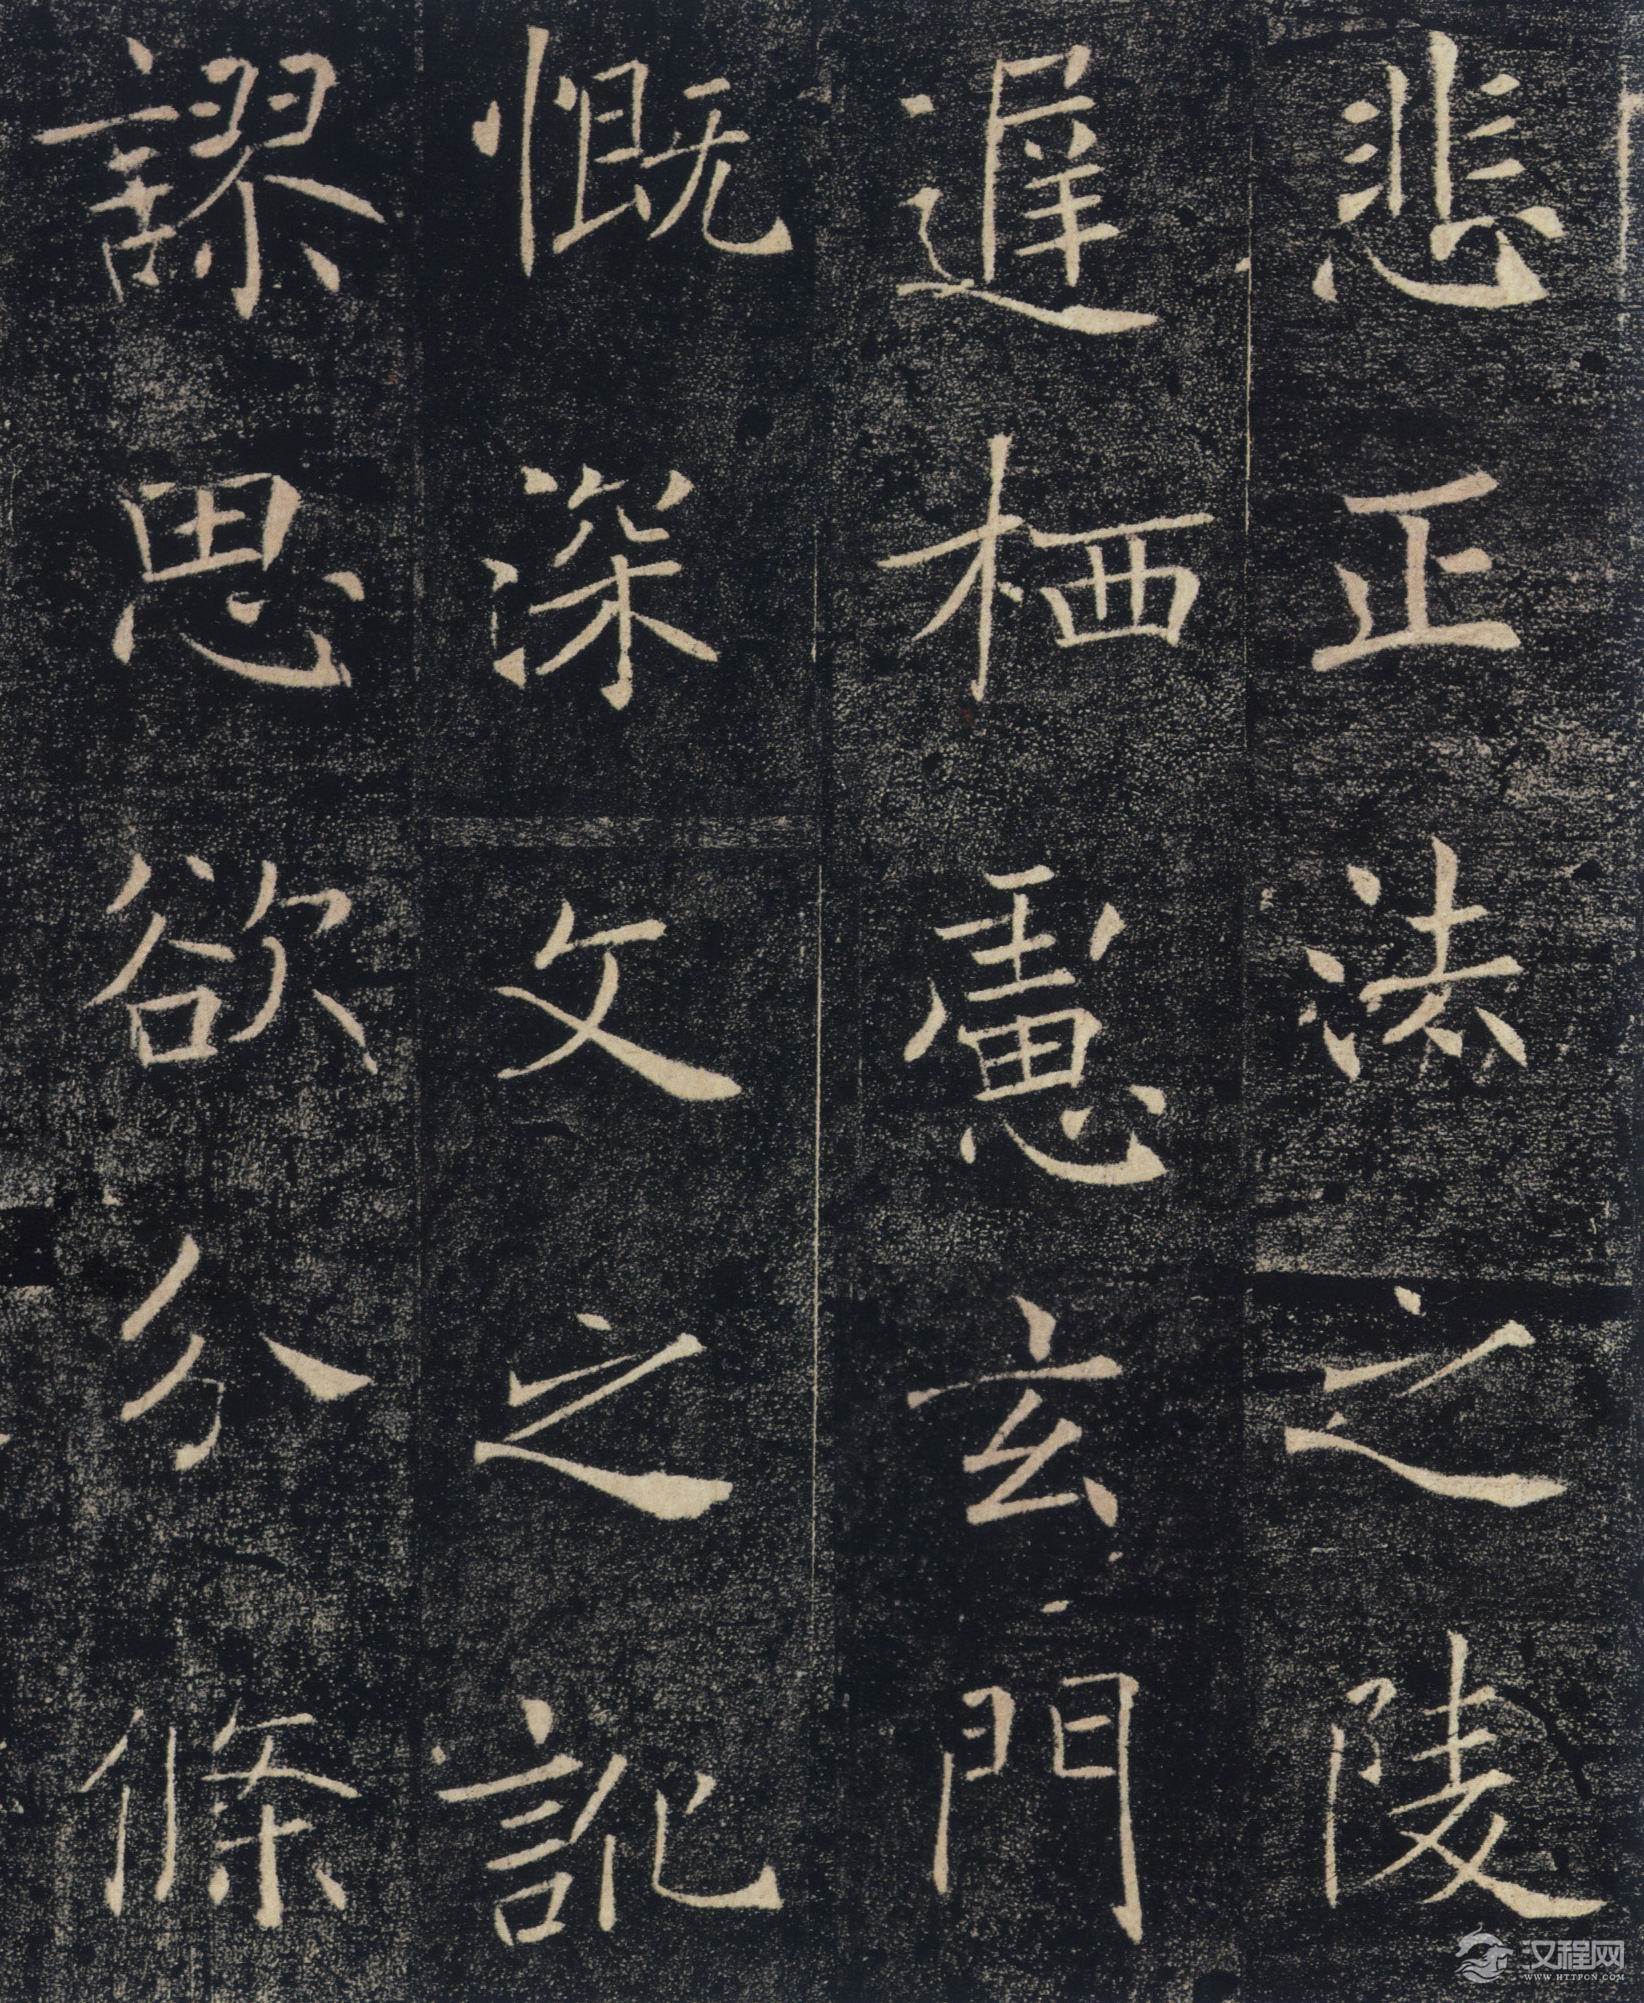 悲正法之陵
遲栖慮玄門
慨深文之訛
謬思欲分條
汉程网
WWW.HTTPCN.COM